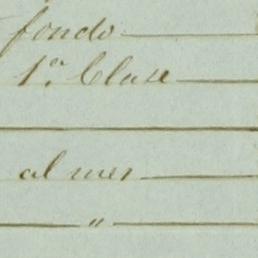 fondo
1ª Clase
al mes
"